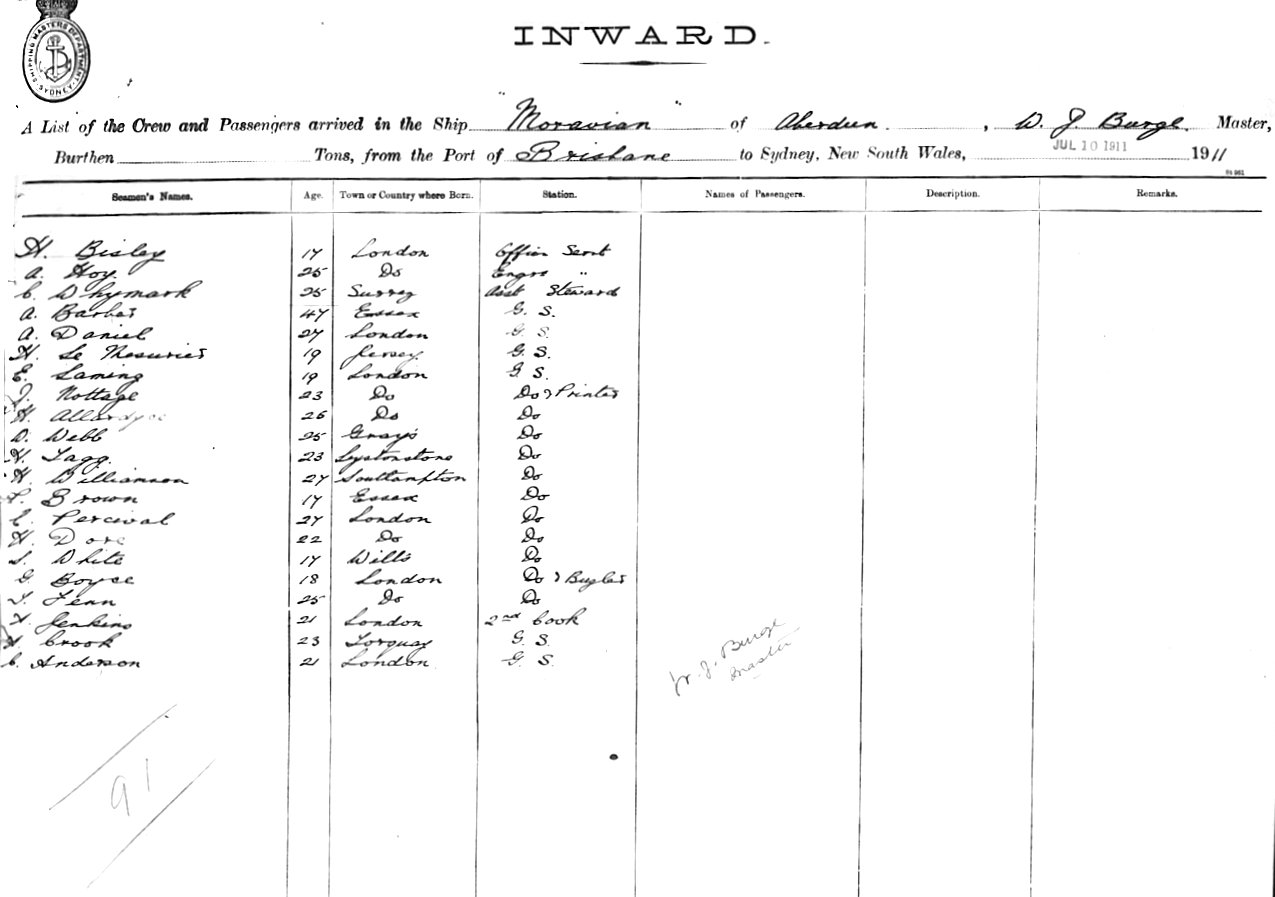 SHIPPING MASTERS DEPARTMENT
SYDNEY
INWARD.
A List of the Crew and Passengers arrived in the Ship "Moravian" of Aberdeen, W. J. Burge. Master,
Burthen Tons, from the Port of Brisbane to Sydney, New South Wales, JUL 10 1911 1911
Seamen's Names. Age. Town or Country where Born. Station. Names of Passengers. Description. Remarks.
H. Bisley 17 London Officers Servt
A. Hoy. 25 Do Engrs "
C. Whymark 25 Surrey Asst Steward
A. Barber 47 Essex G. S.
A. Daniel 27 London G. S.
H. Le Mesurier 19 Jersey. G. S.
E. Laming 19 London G S.
J. Nottage 23 Do Do & Printer
H. Allardyce 26 Do Do
D. Webb 25 Grays Do
H. Tagg. 23 Leystonstone Do
H. Williamson 27 Southampton Do
F. Brown 17 Essex Do
C. Percival 27 London Do
H. Dore 22 Do Do
S. White 17 Wilts Do
G. Boyce 18 London Do & Bugler
T. Fenn 25 Do Do
Jenkins 21 London 2nd Cook
Crook 23 Torquay G. S.
C. Anderson 21 London G. S.
W. J. Burge
Master
91